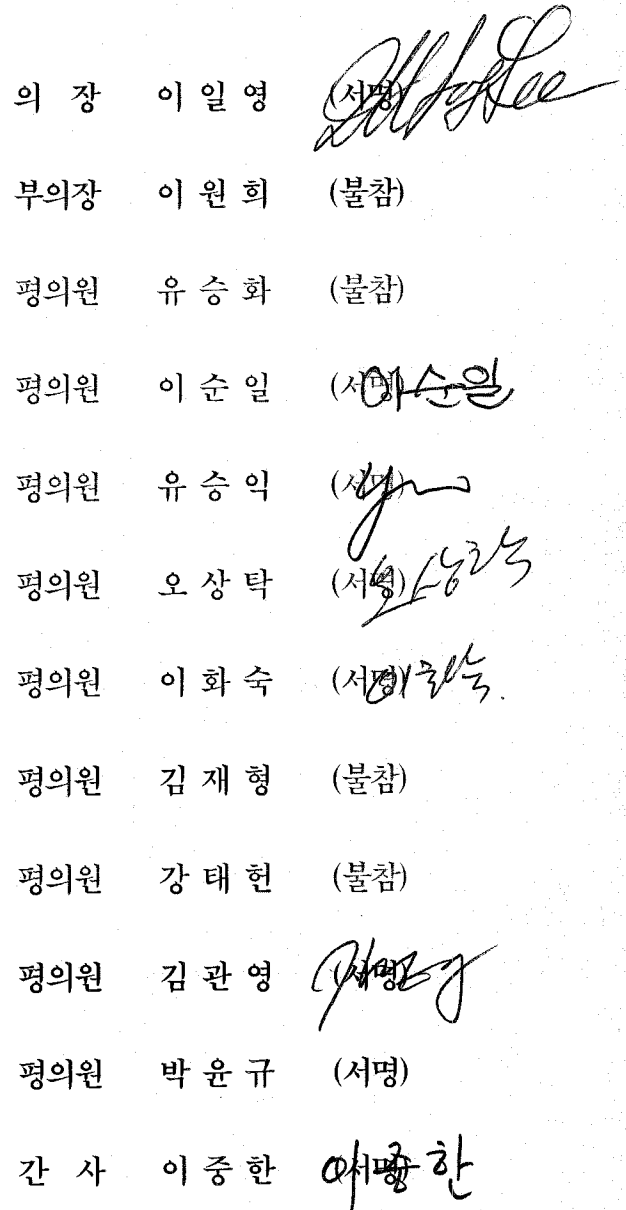 의 장 이 일 영 (서명)
부의장 이 원 희 (불참)
평의원 유 승 화 (불참)
평의원 이 순 일 (서명) 이순일
평의원 유 승 익 (서명)
평의원 오 상 탁 (서명)
평의원 이 화 숙 (서명) 이화숙
평의원 김 재 형 (불참)
평의원 강 태 헌 (불참)
평의원 김 관 영 (서명)
평의원 박 윤 규 (서명)
간 사 이 중 한 (서명) 이중한